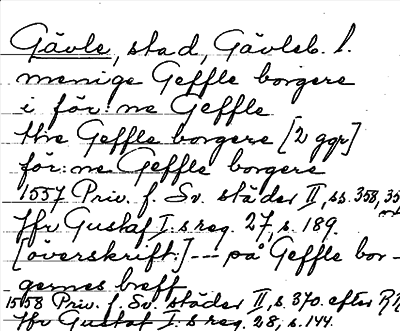 Gävle, stad, Gävleb. l.
menige Geffle borgere
i för:ne Geffle
the Geffle borgere [2 ggr]
för:ne Geffle borgere
1557 Priv. f. Sv. städer II, ss. 358, 35
Jfr Gustaf I:s reg. 27, s. 189.
[överskrift:] --- på Geffle bor-
gernes breff
1558 Priv. f. Sv. städer II, s. 370. efter RR
Jfr Gustaf I:s reg. 28, s. 144.